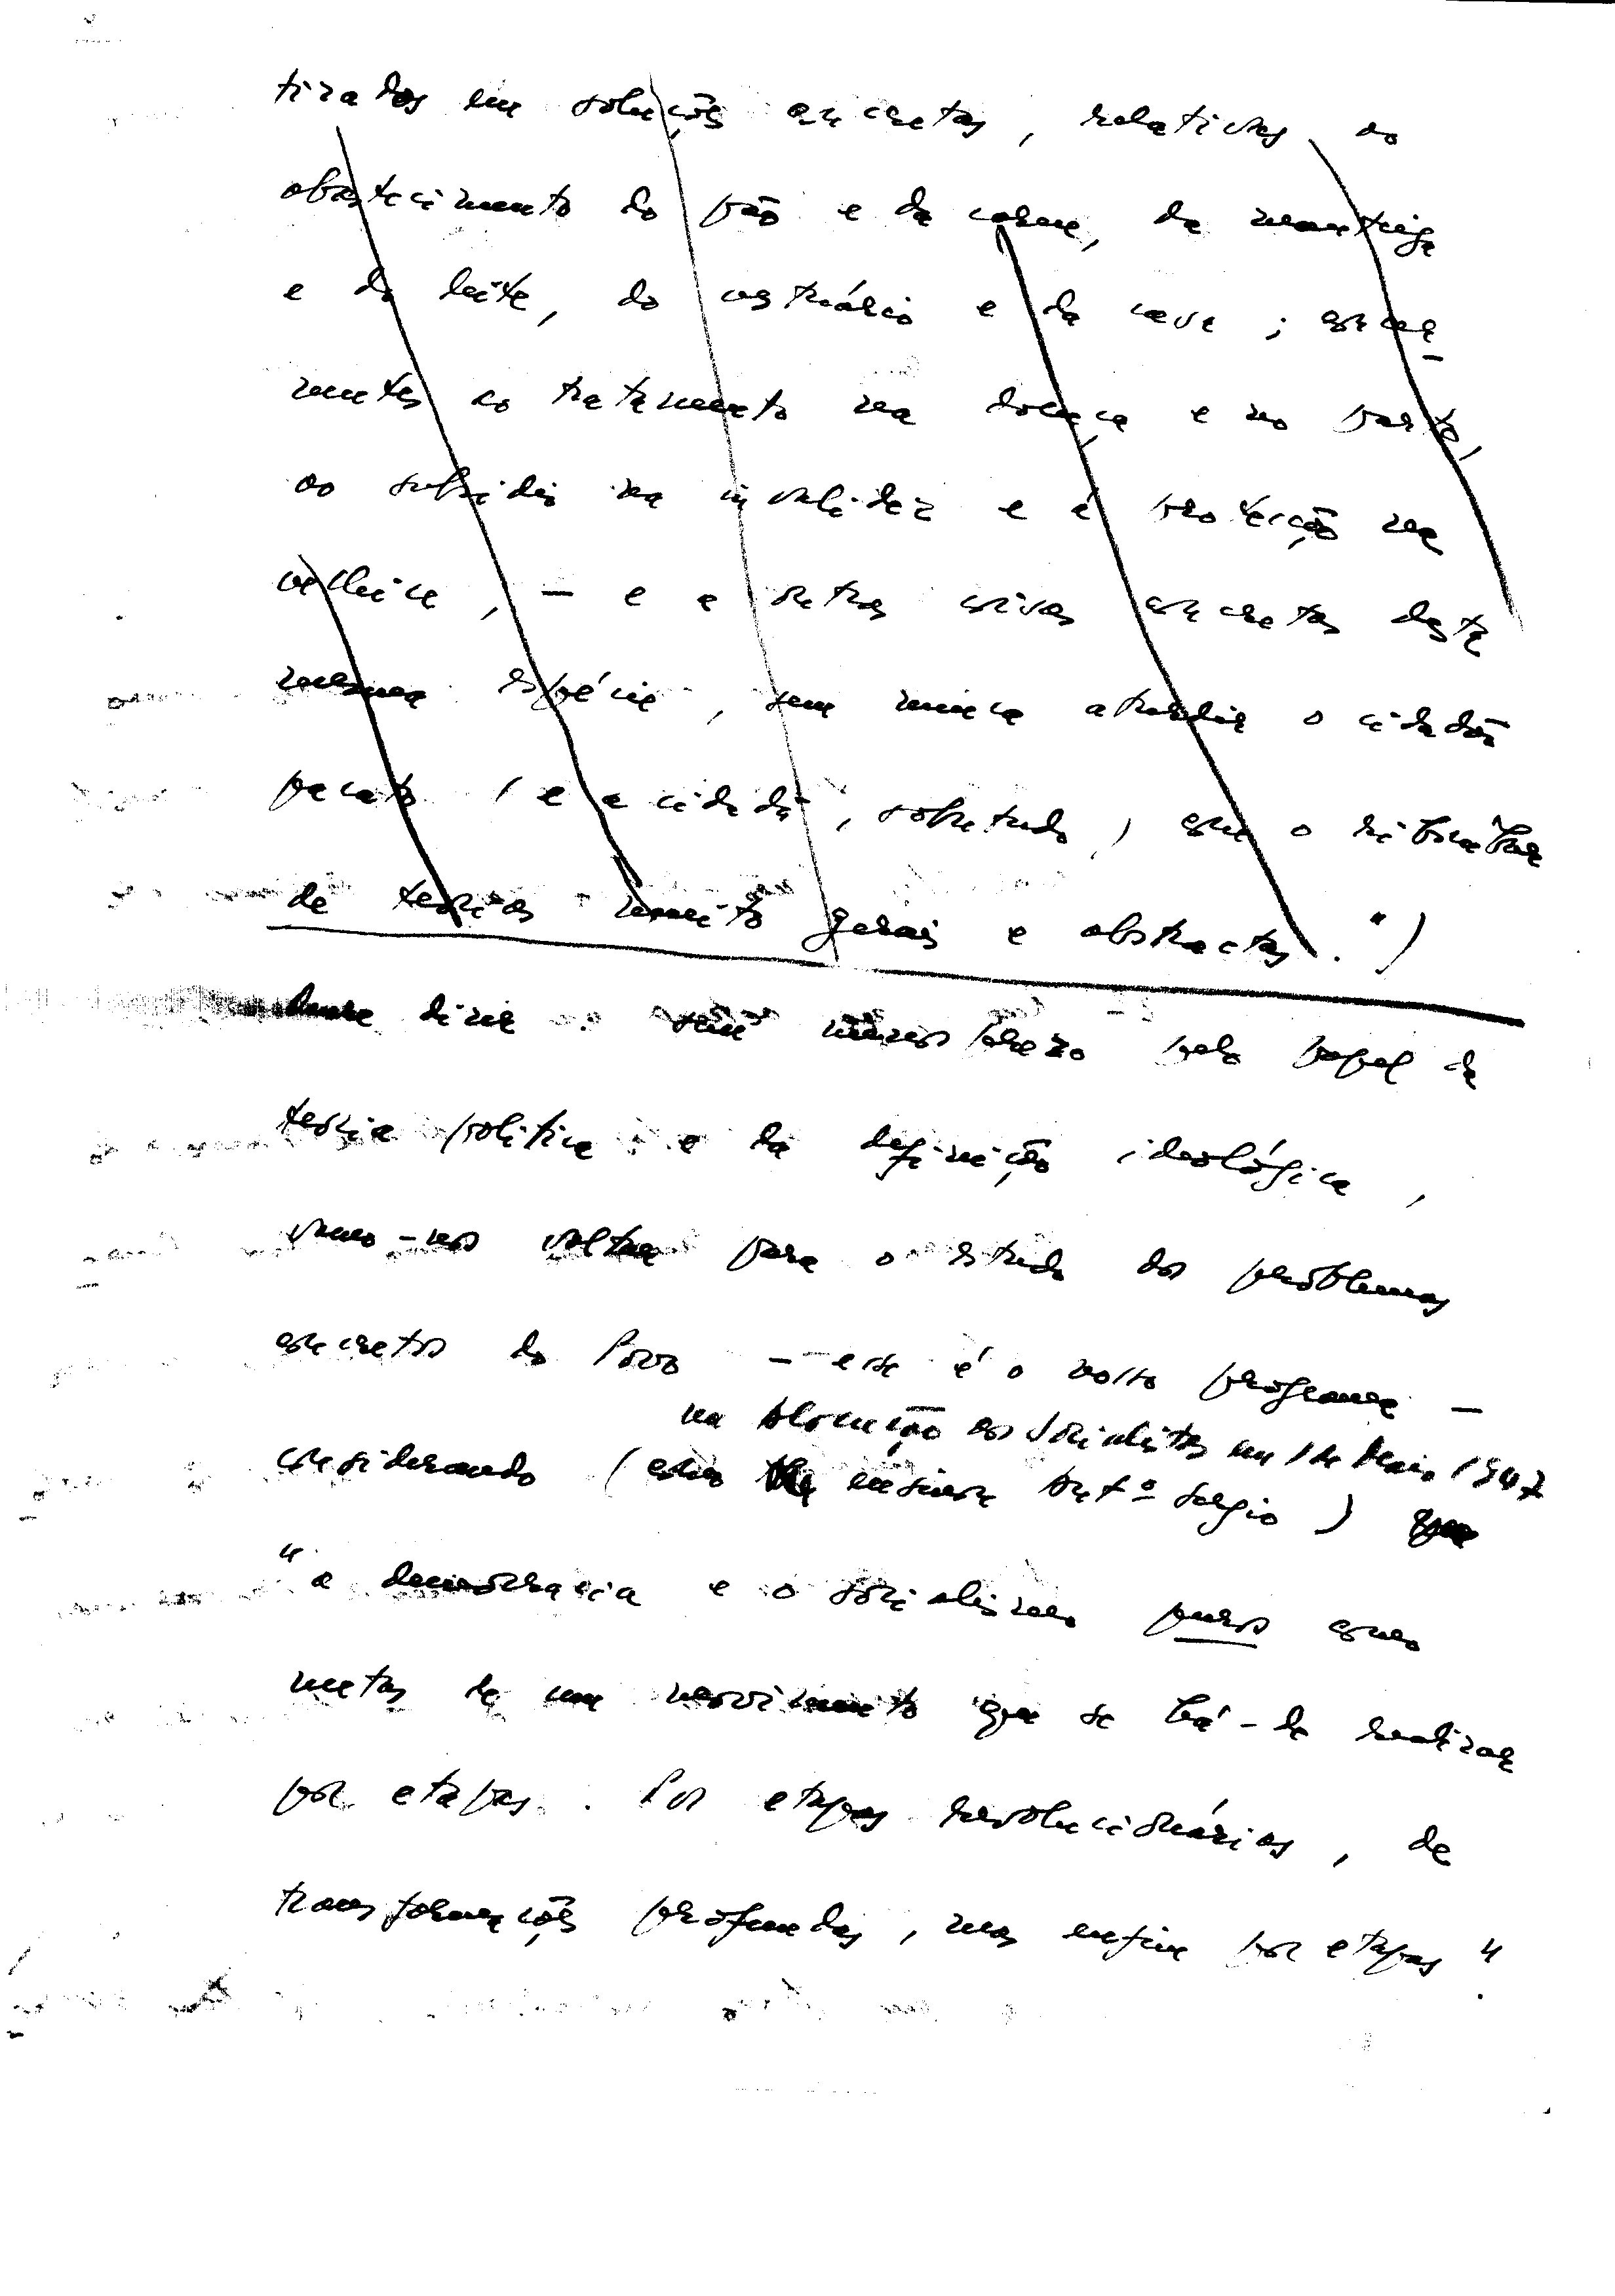 tirados em soluções concretas, relativas ao
abastecimento do pão e da carne, da manteiga
e do leite, do vestuário e da casa; concer-
nentes ao tratamento na doença e no parto,
ao subsídio na invalidez e à protecção na
velhice, – e a outras coisas concretas desta
mesma espécie, sem nunca aturdir o cidadão
pacato (e a cidadã, sobretudo,) com o
de teorias muito gerais e abstractas.")
sem menosprezo pelo papel da
teoria política e da definição ideológica,
vamo-nos voltar para o estudo dos problemas
concretos do Povo – esse é o nosso programa –
na alocução aos socialistas em 1 de Maio 1947
considerando (como ensinou Antº Sergio)
"a democracia e o socialismo puros como
metas de um movimento que se há-de realizar
por etapas. Por etapas revolucionárias, de
transformações profundas, mas enfim por etapas".